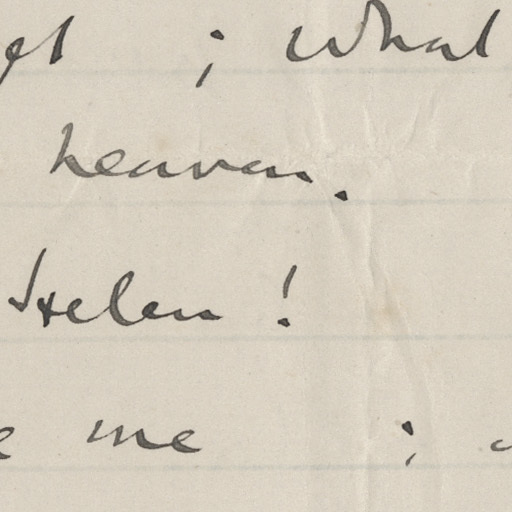 ; what
heaven.
Helen !
me ;